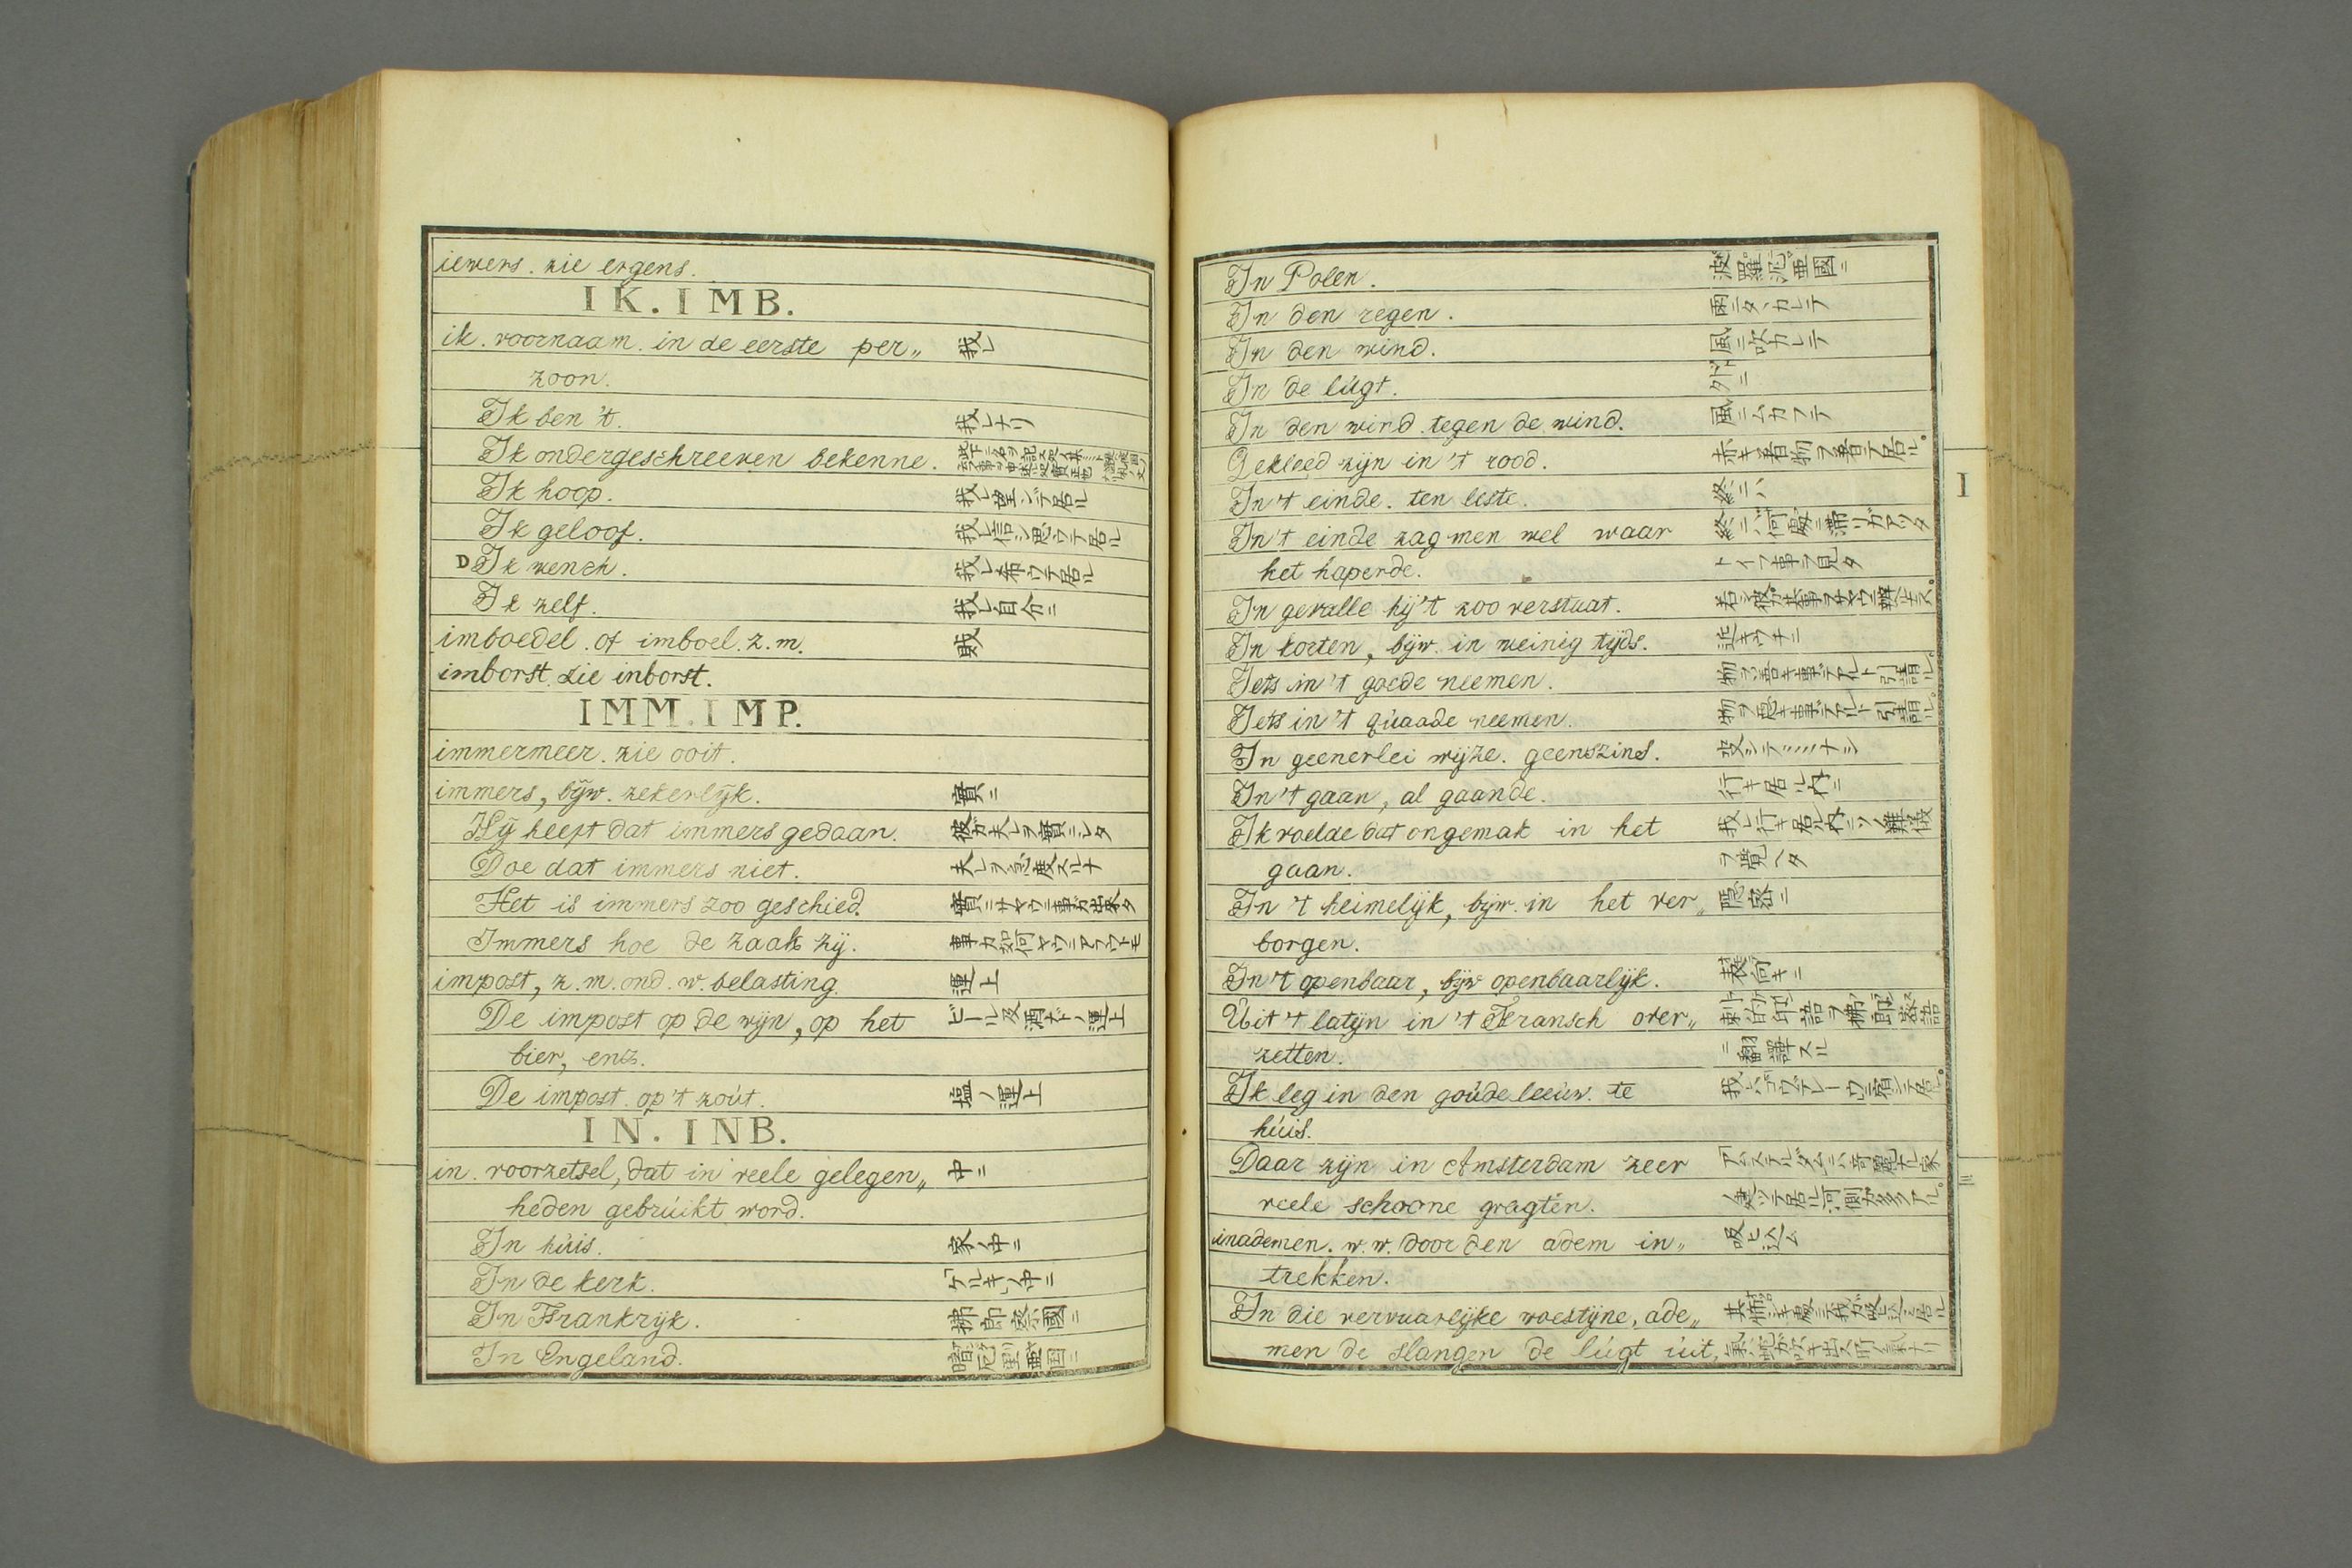 iewers. zie ergens.
IK. IMB.
ik. voornaam. in de eerste per„ 我レ
zoon.
Ik ben 't. 我レナリ
Ik ondergeschreeven bekenne.
Ik hoop. 我レ望ンデ居ル
Ik geloof. 我レ信シ思フテ居ル
D Ik wensch. 我レ希フテ居ル
Ik zelf. 我レ自分ニ
imboedel. of imboel. z. m. 財
imborst. zie inborst.
IMM. IMP.
immermeer. zie ooit.
immers, bijw. zekerlijk. 實ニ
Hij heeft dat immers gedaan. 彼ガ夫レヲ實ニシタ
Doe dat immers niet. 夫レヲ急度スルナ
Het is immers zoo geschied. 實ニサヤウニ事ガ出来タ
Immers hoe de zaak zij. 事カ如何ヤウニアラウトモ
impost, z. m. ond. w. belasting. 運上
De impost op de wijn, op het ビール及酒ナドノ運上
bier, enz.
De impost. op 't zoút. 塩ノ運上
IN. INB.
in. voorzetsel, dat in veele gelegen„ 中ニ
heden gebrúikt word.
In húis. 家ノ中ニ
In de kerk. 「ケルキ」ノ中ニ
In Frankrijk. 拂郎察國ニ
In Engeland. 諳厄里亜国ニ
In Polen. 波羅泥亜國ニ
In den regen. 雨ニタヽカレテ
In den wind. 風ニ吹カレテ
In de lúgt. 外ニ
In den wind. tegen de wind. 風ニムカフテ
Gekleed zijn in 't rood. 赤キ着物ヲ着テ居ル。
In 't einde. ten leste. 終ニハ
In 't einde zag men wel waar 終ニハ何處ニ滞リガアツタ
het haperde. トイフ事ヲ見タ
In gevalle hij 't zoo verstaat.
In korten, bijw. in weinig tijds. 近キウチニ
Iets in 't goede neemen. 物ヲ善キ事デアルト引請ル。
Iets in 't qúaade neemen. 物ヲ悪キ事デアルト引請ル。
In geenerlei wijze. geenszins. 決シテ‥‥ナシ
In 't gaan, al gaande. 行キ居ル内ニ
Ik voelde dat ongemak in het 我レ行キ居ル内ニソノ難儀
gaan. ヲ覺ヘタ
In 't heimelijk, bijw. in het ver„ 隠密ニ
borgen.
In 't openbaar, bijw openbaarlijk. 表向キニ
Uit 't latijn in 't Fransch over„ 刺的印語ヲ拂郎察語
zetten. ニ翻譯スル
Ik leg in den goúde leeúw. te
húis.
Daar zijn in Amsterdam zeer 「アムステルダム」ニハ奇麗ナル家
veele schoone gragten. ノ建ツテ居ル河側ガ多クアル。
inademen. w. w. door den adem in„ 吸ヒ込ム
trekken.
In die vervaarlijke woestijne, ade„
men de slangen de lúgt úit,
I
三